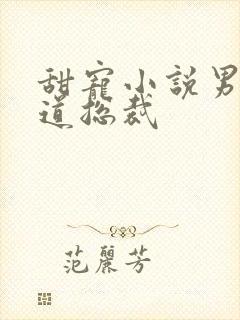 甜寵小說男
道捴裁
范麗芳